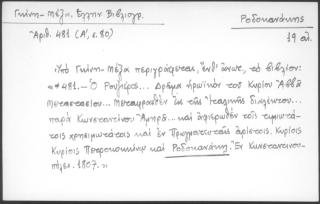 Γκίνη - Μέξα, Ἑλλην. Βιβλιογρ.
Ῥοδοκανάκης
Ἀριθ. 481 (Α', σ. 80)
19 αἰ.
Ὑπὸ Γκίνη - Μέξα περιγράφεται, ἔνθ' ἄνωτ., τὸ βιβλίον:
«*481.- Ὁ Ρουΐερος... Δρᾶμα ἡρωϊκὸν τοῦ Κυρίου Ἀββᾶ
Μεταστασίου... Μεταφρασθὲν ἐκ τῆς Ἰταλικῆς διαλέκτου...
παρὰ Κωνσταντίνου ... καὶ ἀφιερωθὲν τοῖς τιμιωτά-
τοις χρησιμωτάτοις καὶ ἐν Πραγματευταῖς ἀρίστοις, Κυρίοις
Κυρίοις Πετροκοκκίνῳ καὶ Ροδοκανάκῃ. Ἐν Κωνσταντινου-
πόλει. 1807.»